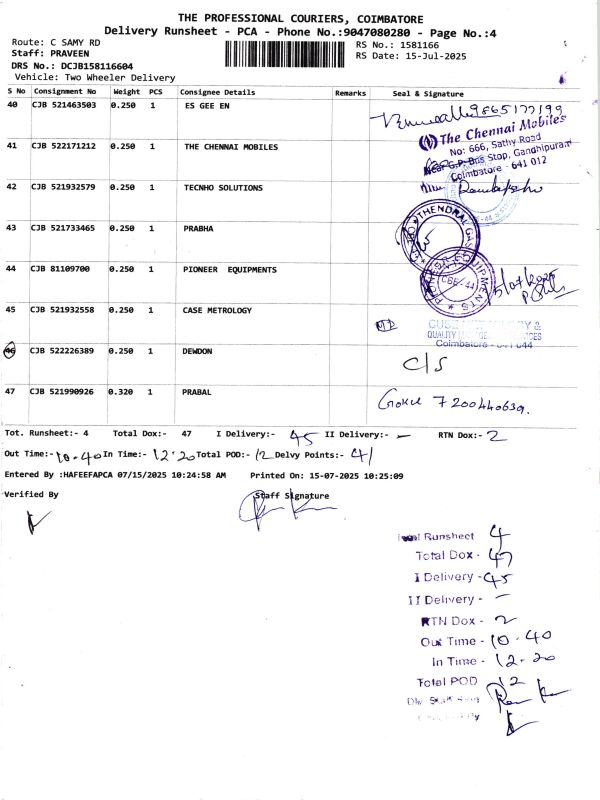 THE PROFESSIONAL COURIERS, COIMBATORE
Delivery Runsheet - PCA - Phone No.:9047080280 - Page No.:4
Route: C SAMY RD
RS No.: 1581166
Staff: PRAVEEN
RS Date: 15-Jul-2025
DRS No.: DCJB158116604
Vehicle: Two Wheeler Delivery
S No Consignment No Weight PCS Consignee Details Remarks Seal & Signature
40 CJB 521463503 0.250 1 ES GEE EN 9865177199
41 CJB 522171212 0.250 1 THE CHENNAI MOBILES
The Chennai Mobiles
No: 666, Sathy Road
Near G.P. Bus Stop, Gandhipuram
Coimbatore - 641 012
42 CJB 521932579 0.250 1 TECNHO SOLUTIONS
43 CJB 521733465 0.250 1 PRABHA
THENDRAL GAS
44 CJB 81109700 0.250 1 PIONEER EQUIPMENTS
CBE-44
45 CJB 521932558 0.250 1 CASE METROLOGY
46 CJB 522226389 0.250 1 DEWDON C/S
47 CJB 521990926 0.320 1 PRABAL Gokul 7200440639.
Tot. Runsheet:- 4 Total Dox:- 47 I Delivery:- 45 II Delivery:- — RTN Dox:- 2
Out Time:- 10.40 In Time:- 12.20 Total POD:- 12 Delvy Points:- 41
Entered By :HAFEEFAPCA 07/15/2025 10:24:58 AM Printed On: 15-07-2025 10:25:09
Verified By Staff Signature
Total Runsheet 4
Total Dox - 47
I Delivery - 45
II Delivery - —
RTN Dox - 2
Out Time - 10.40
In Time - 12.20
Total POD 12